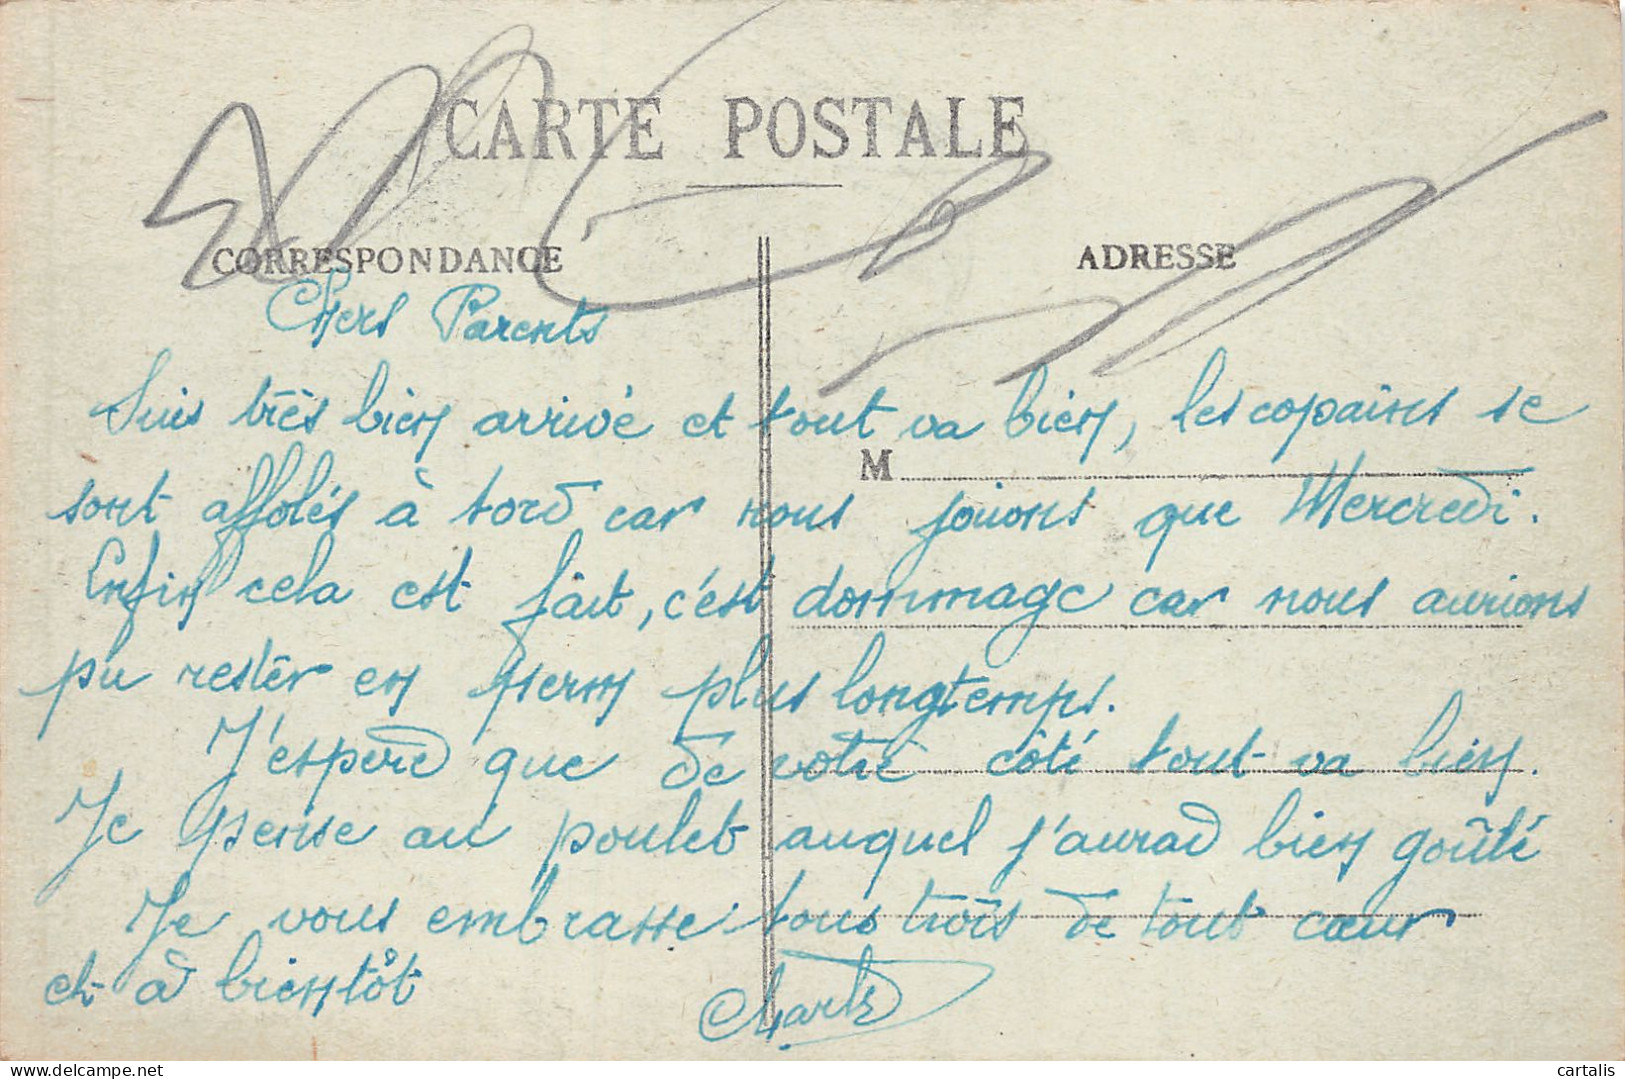 CARTE POSTALE
CORRESPONDANCE
ADRESSE
Chers Parents
Suis très bien arrivé et tout va bien, les copains se
M
sont affolés à tord car nous jouions que Mercredi.
Enfin cela est fait, c'est dommage car nous aurions
pu rester en perm plus longtemps.
J'espère que de votre côté tout va bien.
Je pense au poulet auquel j'aurad bien goûté
Je vous embrasse tous trois de tout cœur
et à bientôt
Charles
delcampe.net
cartalis